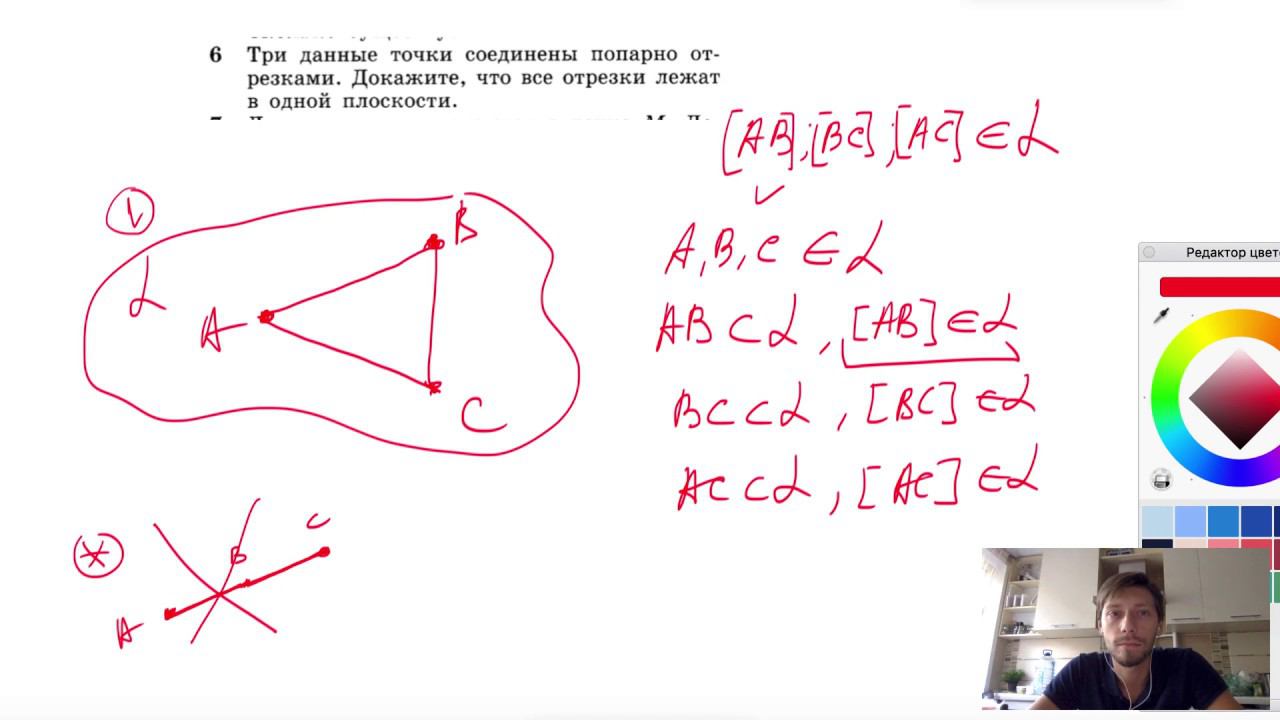 6 Три данные точки соединены попарно от-
резками. Докажите, что все отрезки лежат
в одной плоскости.
[AB];[BC];[AC] ∈ α
1
α
A
B
C
A, B, C ∈ α
AB ⊂ α, [AB] ∈ α
BC ⊂ α, [BC] ∈ α
AC ⊂ α, [AC] ∈ α
*
A
B
C
Редактор цвет